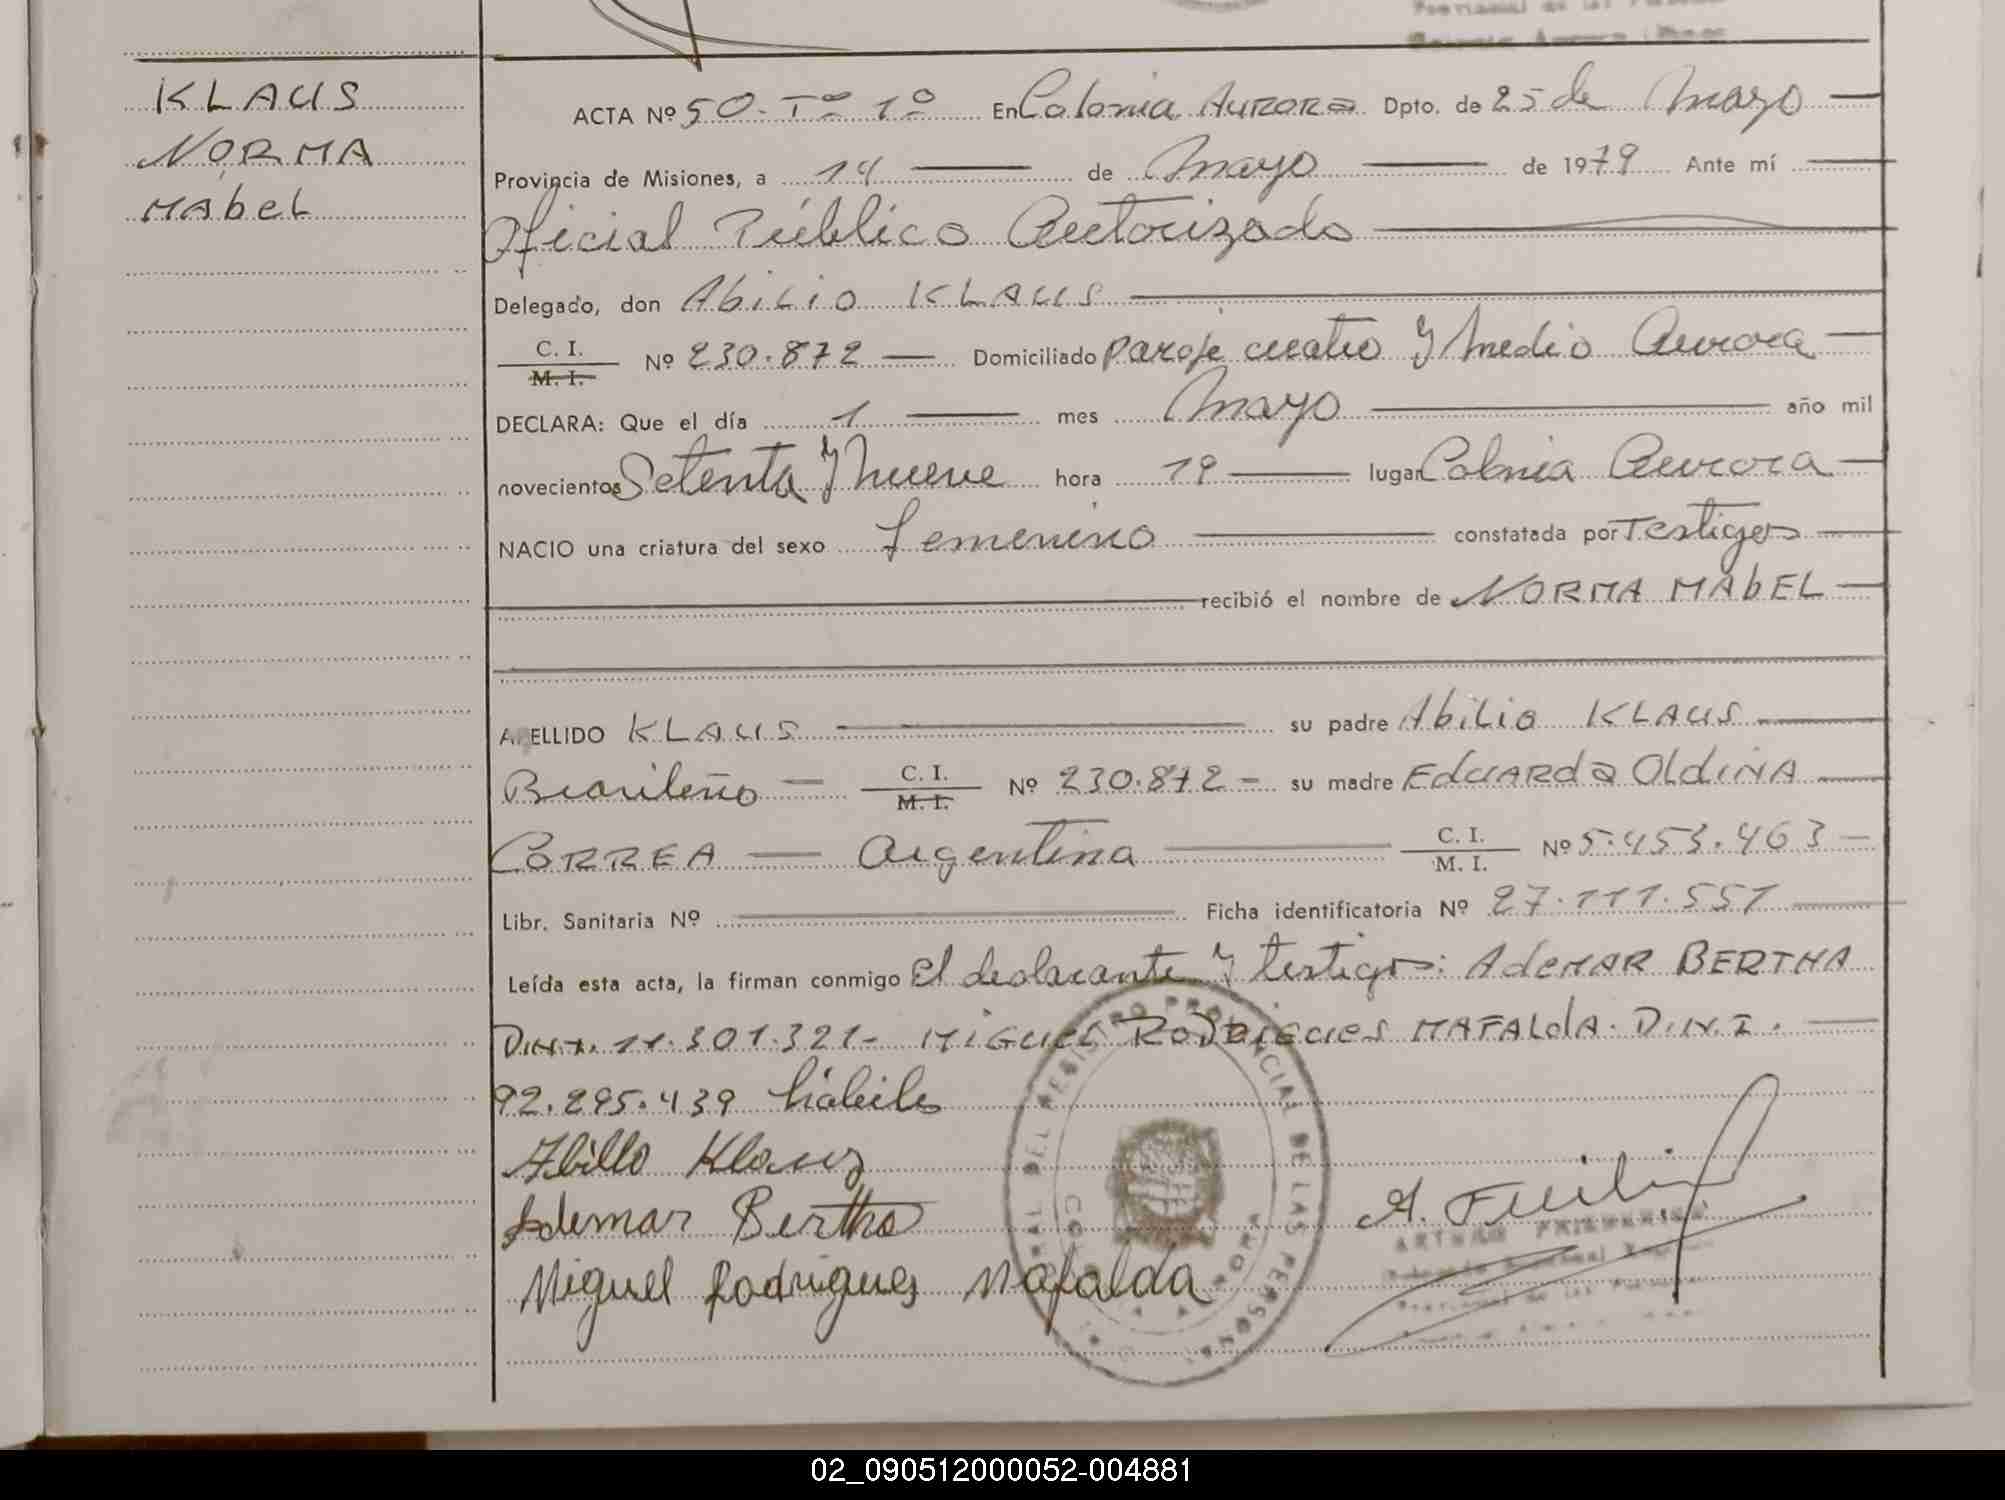 KLAUS
NORMA
MAbEL
ACTA Nº 50. Tº 1º En Colonia AURORA Dpto. de 25 de Mayo
Provincia de Misiones, a 14 de Mayo de 1979 Ante mí
Oficial Público Autorizado
Delegado, don AbiLio KLAUS
C. I.
M. I. Nº 230.872 Domiciliado paraje cuatro y medio Aurora
DECLARA: Que el día 1 mes Mayo año mil
novecientos Setenta y nueve hora 19 lugar Colonia Aurora
NACIO una criatura del sexo femenino constatada por Testigos
recibió el nombre de NORMA MAbEL
APELLIDO KLAUS su padre AbiLio KLAUS
Brasileño C. I.
M. I. Nº 230.872 su madre EdUARda OLdiNA
CORREA Argentina C. I.
M. I. Nº 5.453.463
Libr. Sanitaria Nº Ficha identificatoria Nº 27.111.551
Leída esta acta, la firman conmigo El declarante y testigos: AdEMAR BERTHA
D.N.I. 11.301.321- MIGUEL ROdRIGUES MAFALdA. D.N.I.
92.295.439 hábiles
Abillo Klaus
Ademar Bertha
Miguel Rodrigues Mafalda
DEL REGISTRO PROVINCIAL DE LAS PERSONAS
02_090512000052-004881